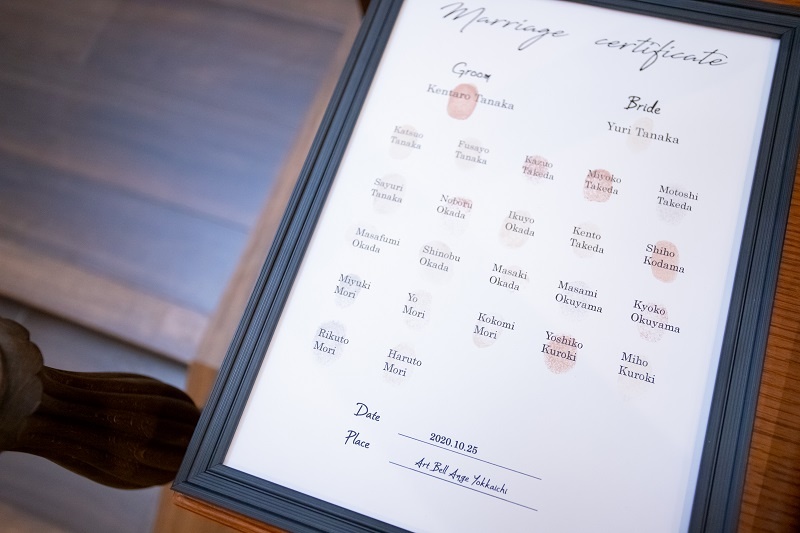 Marriage certificate
Groom
Kentaro Tanaka
Bride
Yuri Tanaka
Katsuo
Tanaka
Fusayo
Tanaka
Kazuo
Takeda
Miyoko
Takeda
Motoshi
Takeda
Sayuri
Tanaka
Noboru
Okada
Ikuyo
Okada
Kento
Takeda
Shiho
Kodama
Masafumi
Okada
Shinobu
Okada
Masaki
Okada
Masami
Okuyama
Kyoko
Okuyama
Miyuki
Mori
Yo
Mori
Kokomi
Mori
Yoshiko
Kuroki
Miho
Kuroki
Rikuto
Mori
Haruto
Mori
Date 2020.10.25
Place Art Bell Ange Yokkaichi